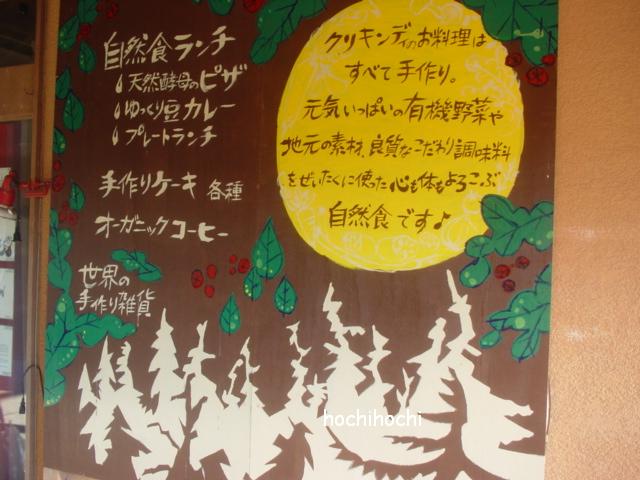 自然食ランチ
天然酵母のピザ
ゆっくり豆カレー
プレートランチ
手作りケーキ 各種
オーガニックコーヒー
世界の
手作り雑貨
クリキンディのお料理は
すべて手作り。
元気いっぱいの有機野菜や
地元の素材、良質なこだわり調味料
をぜいたくに使った心も体もよろこぶ
自然食です♪
hochihochi